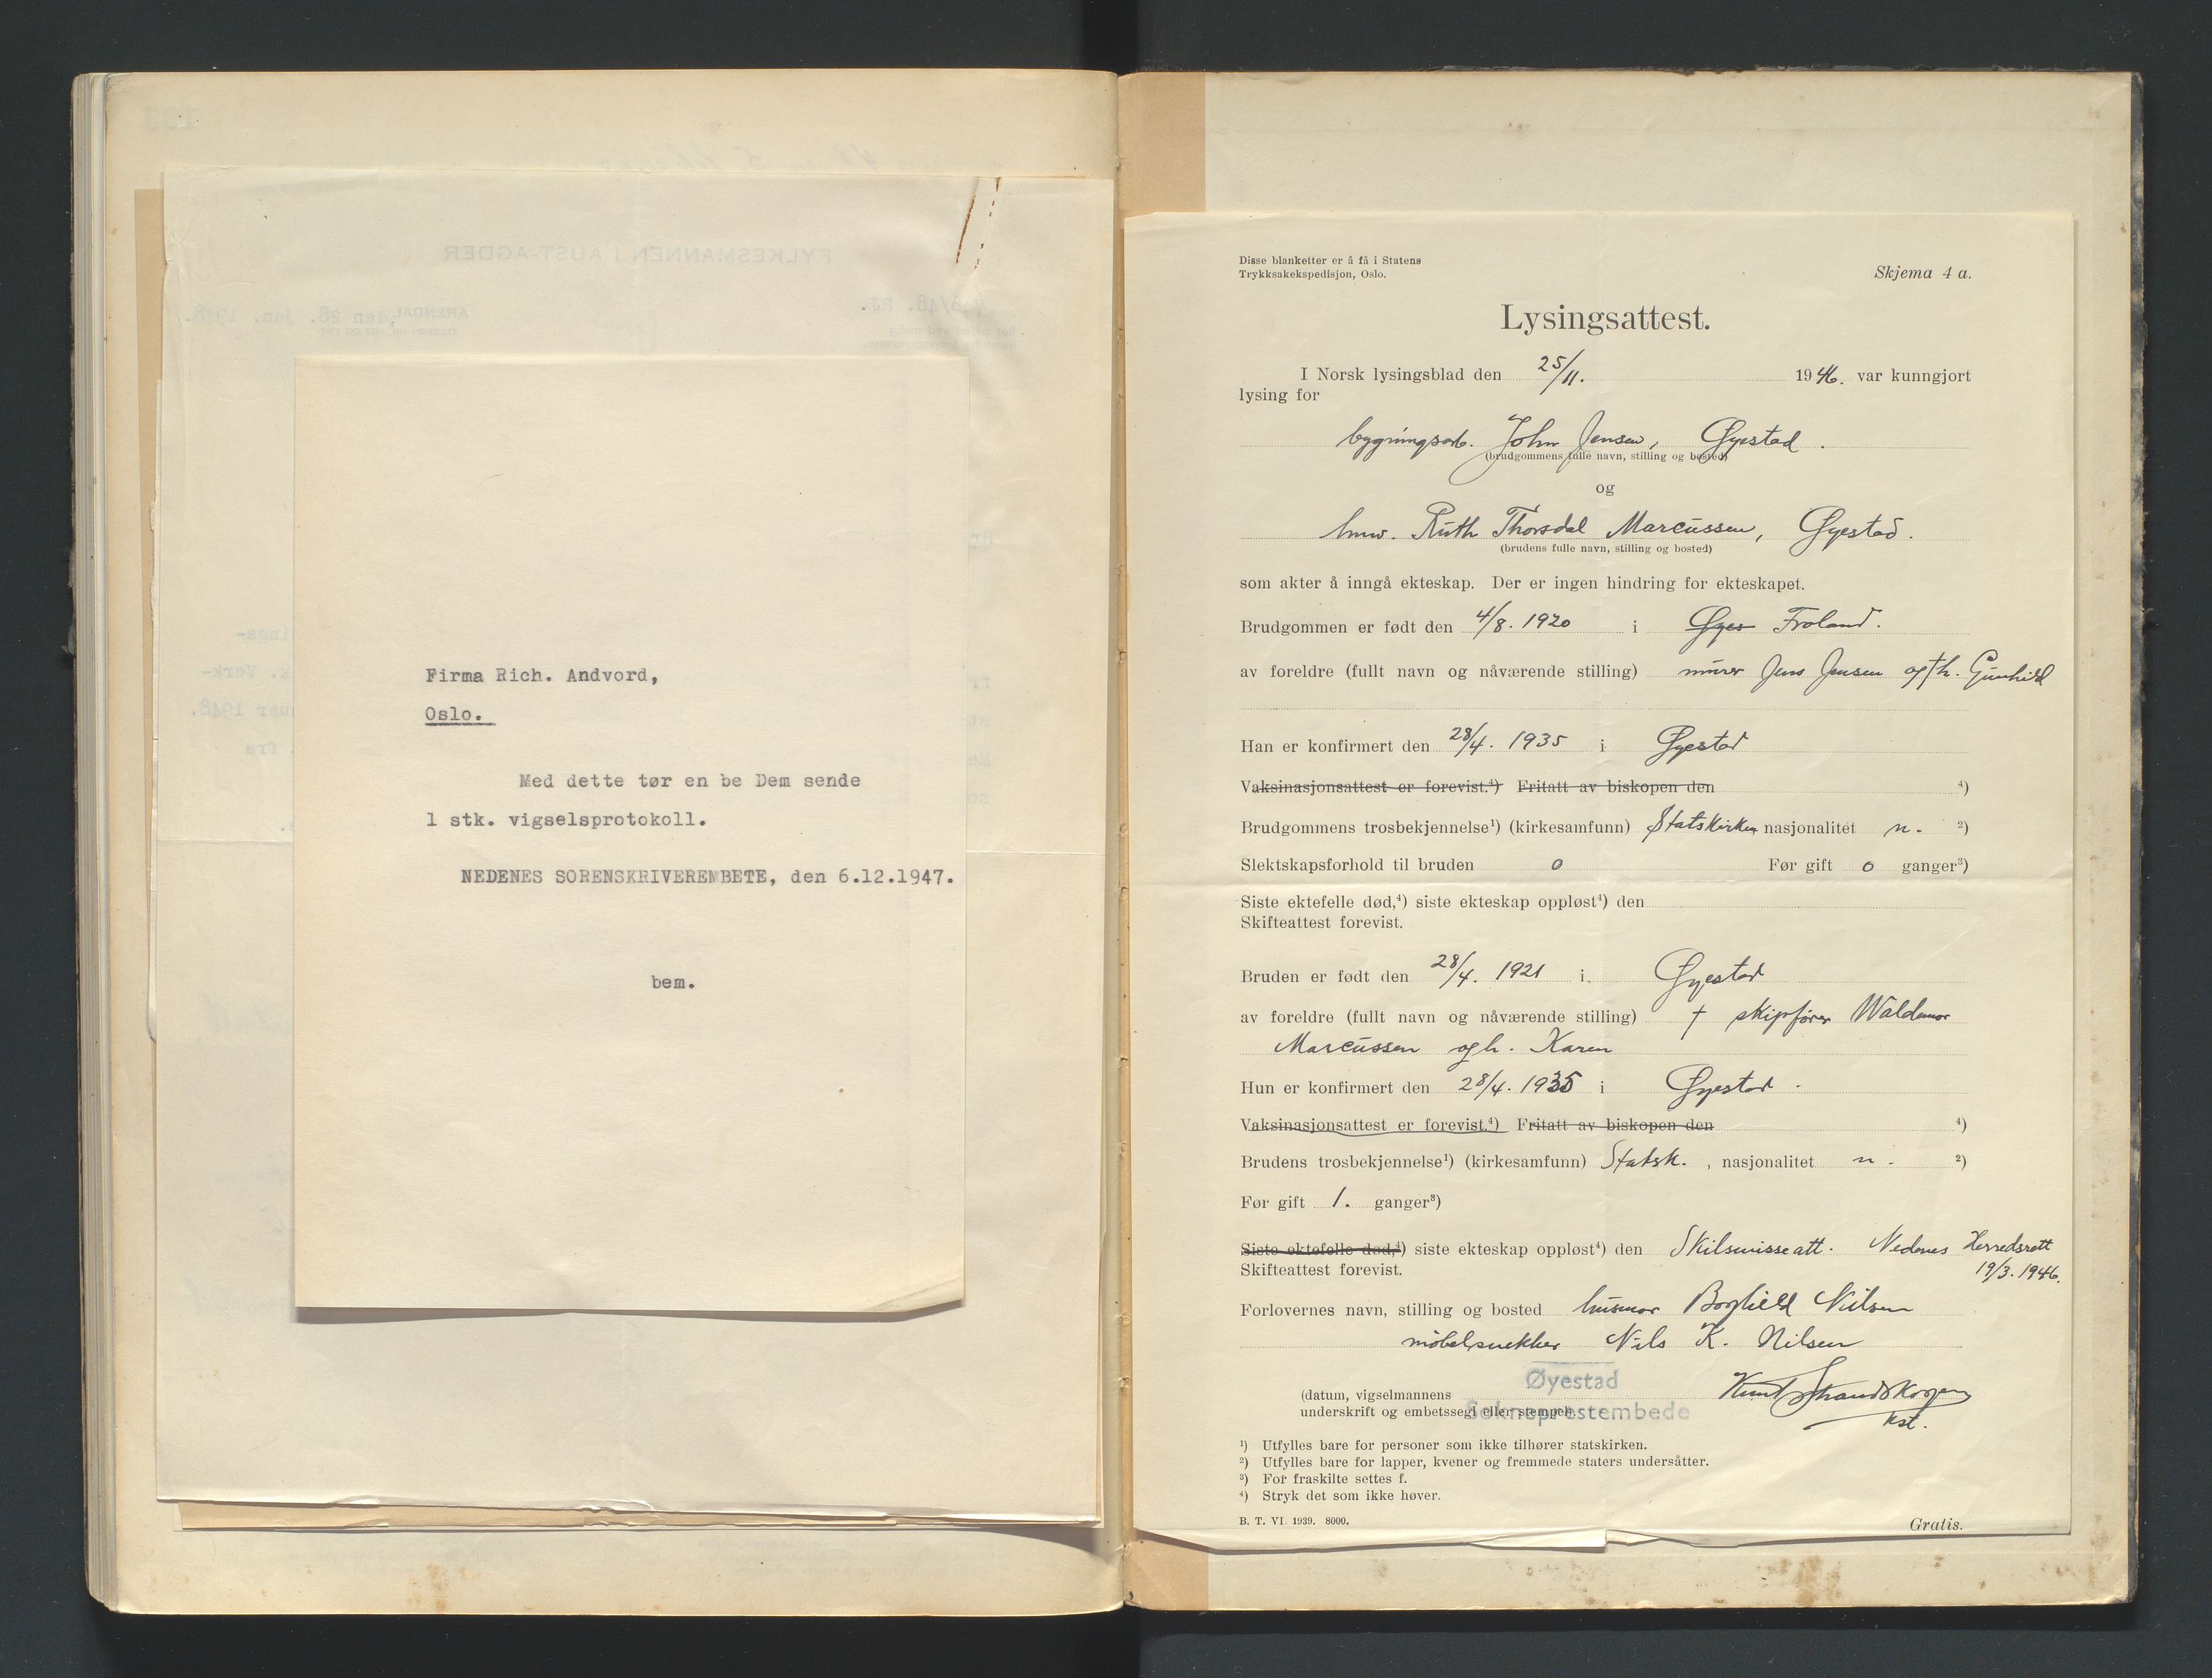 Firma Rich. Andvord,
Oslo.
Med dette tør en be Dem sende
1 stk. vigselsprotokoll.
NEDENES SORENSKRIVEREMBETE, den 6.12.1947.
bem.
FYLKESMANNEN I AUST-AGDER
ARENDAL, den 28. jan. 1948.
Disse blanketter er å få i Statens
Trykksakekspedisjon, Oslo.
Skjema 4 a.
Lysingsattest.
I Norsk lysingsblad den 25/11. 1946. var kunngjort
lysing for
bygningsarb. John Jensen, Øyestad.
(brudgommens fulle navn, stilling og bosted)
og
hmv. Ruth Thorsdal Marcussen, Øyestad.
(brudens fulle navn, stilling og bosted)
som akter å inngå ekteskap. Der er ingen hindring for ekteskapet.
Brudgommen er født den 4/8. 1920 i Øyes Froland.
av foreldre (fullt navn og nåværende stilling) murer Jens Jensen og † h. Gunhild
Han er konfirmert den 28/4. 1935 i Øyestad
Vaksinasjonsattest er forevist.⁴) Fritatt av biskopen den ⁴)
Brudgommens trosbekjennelse¹) (kirkesamfunn) Statskirken nasjonalitet n. ²)
Slektskapsforhold til bruden 0 Før gift 0 ganger³)
Siste ektefelle død,⁴) siste ekteskap oppløst⁴) den
Skifteattest forevist.
Bruden er født den 28/4. 1921 i Øyestad
av foreldre (fullt navn og nåværende stilling) † skipsfører Waldemar
Marcussen og h. Karen
Hun er konfirmert den 28/4. 1935 i Øyestad.
Vaksinasjonsattest er forevist.⁴) Fritatt av biskopen den ⁴)
Brudens trosbekjennelse¹) (kirkesamfunn) Statsk. , nasjonalitet n. ²)
Før gift 1. ganger³)
Siste ektefelle død,⁴) siste ekteskap oppløst⁴) den Skilsmisseatt. Nedenes Herredsrett
Skifteattest forevist. 19/3. 1946.
Forlovernes navn, stilling og bosted husmor Borghild Nilsen
møbelsnekker Nils K. Nilsen
(datum, vigselmannens
underskrift og embetssegl eller stempel).
Øyestad
Sokneprestembede
Knut Strandskogen
kst.
¹) Utfylles bare for personer som ikke tilhører statskirken.
²) Utfylles bare for lapper, kvener og fremmede staters undersåtter.
³) For fraskilte settes f.
⁴) Stryk det som ikke høver.
B. T. VI. 1939. 8000.
Gratis.